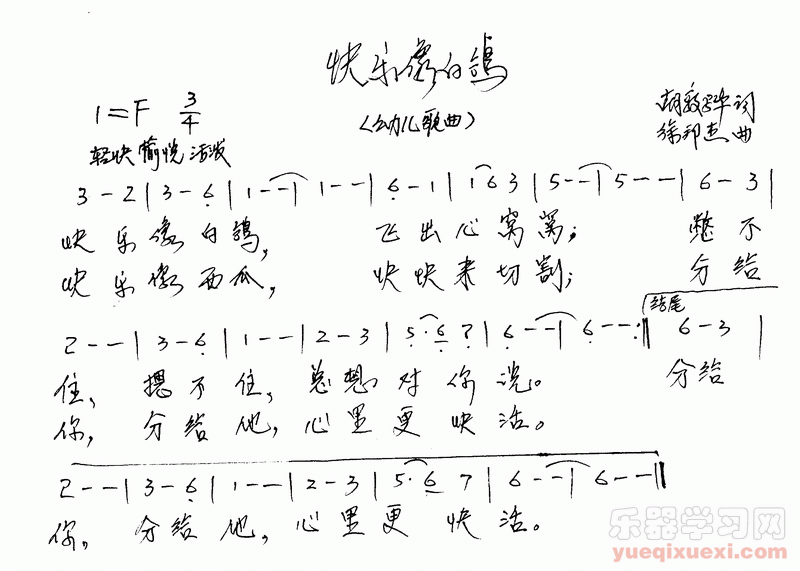 快乐像白鸽
1=F 3/4
(幼儿歌曲)
胡敦骅词
徐邦杰曲
轻快 愉悦 活泼
3 - 2 | 3 - 6̣ | 1 - - | 1 - - | 6̣ - 1 | 1 6̣ 3 | 5 - - | 5 - - | 6 - 3 |
快乐像白鸽, 飞出心窝窝; 憋不
快乐像西瓜, 快快来切割; 分给
2 - - | 3 - 6̣ | 1 - - | 2 - 3 | 5̣ · 6̣ 7̣ | 6̣ - - | 6̣ - - :‖ 结尾 6 - 3 |
住, 摁不住, 总想对你说。 分给
你, 分给他, 心里更快活。
2 - - | 3 - 6̣ | 1 - - | 2 - 3 | 5 · 6 7 | 6 - - | 6 - - ‖
你, 分给他, 心里更快活。
乐器学习网
yueqixuexi.com